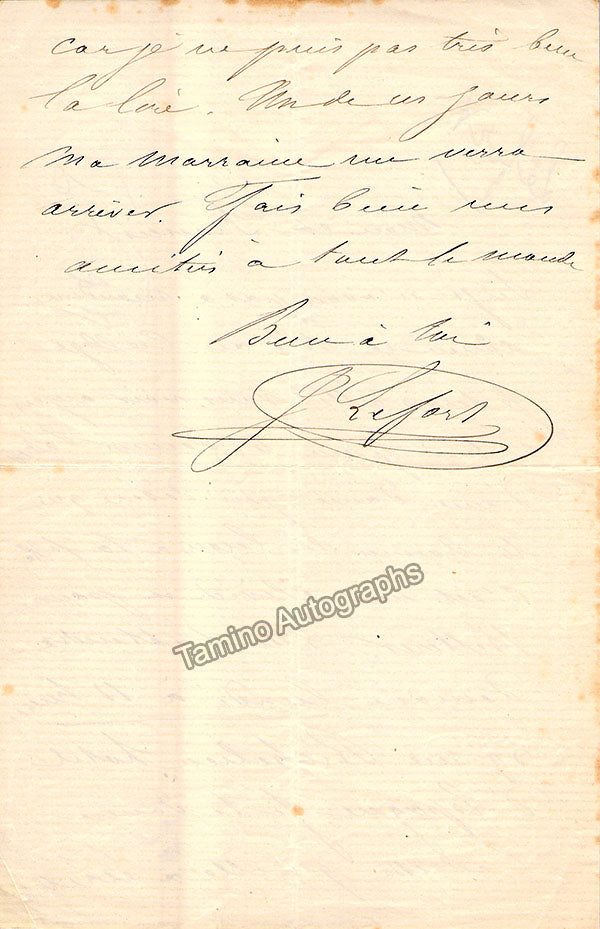 car je ne puis pas très bien
la lire. Un de ces jours
ma marraine me verra
arriver. Fais bien mes
amitiés à tout le monde
Bien à toi
J Lefort
Tamino Autographs